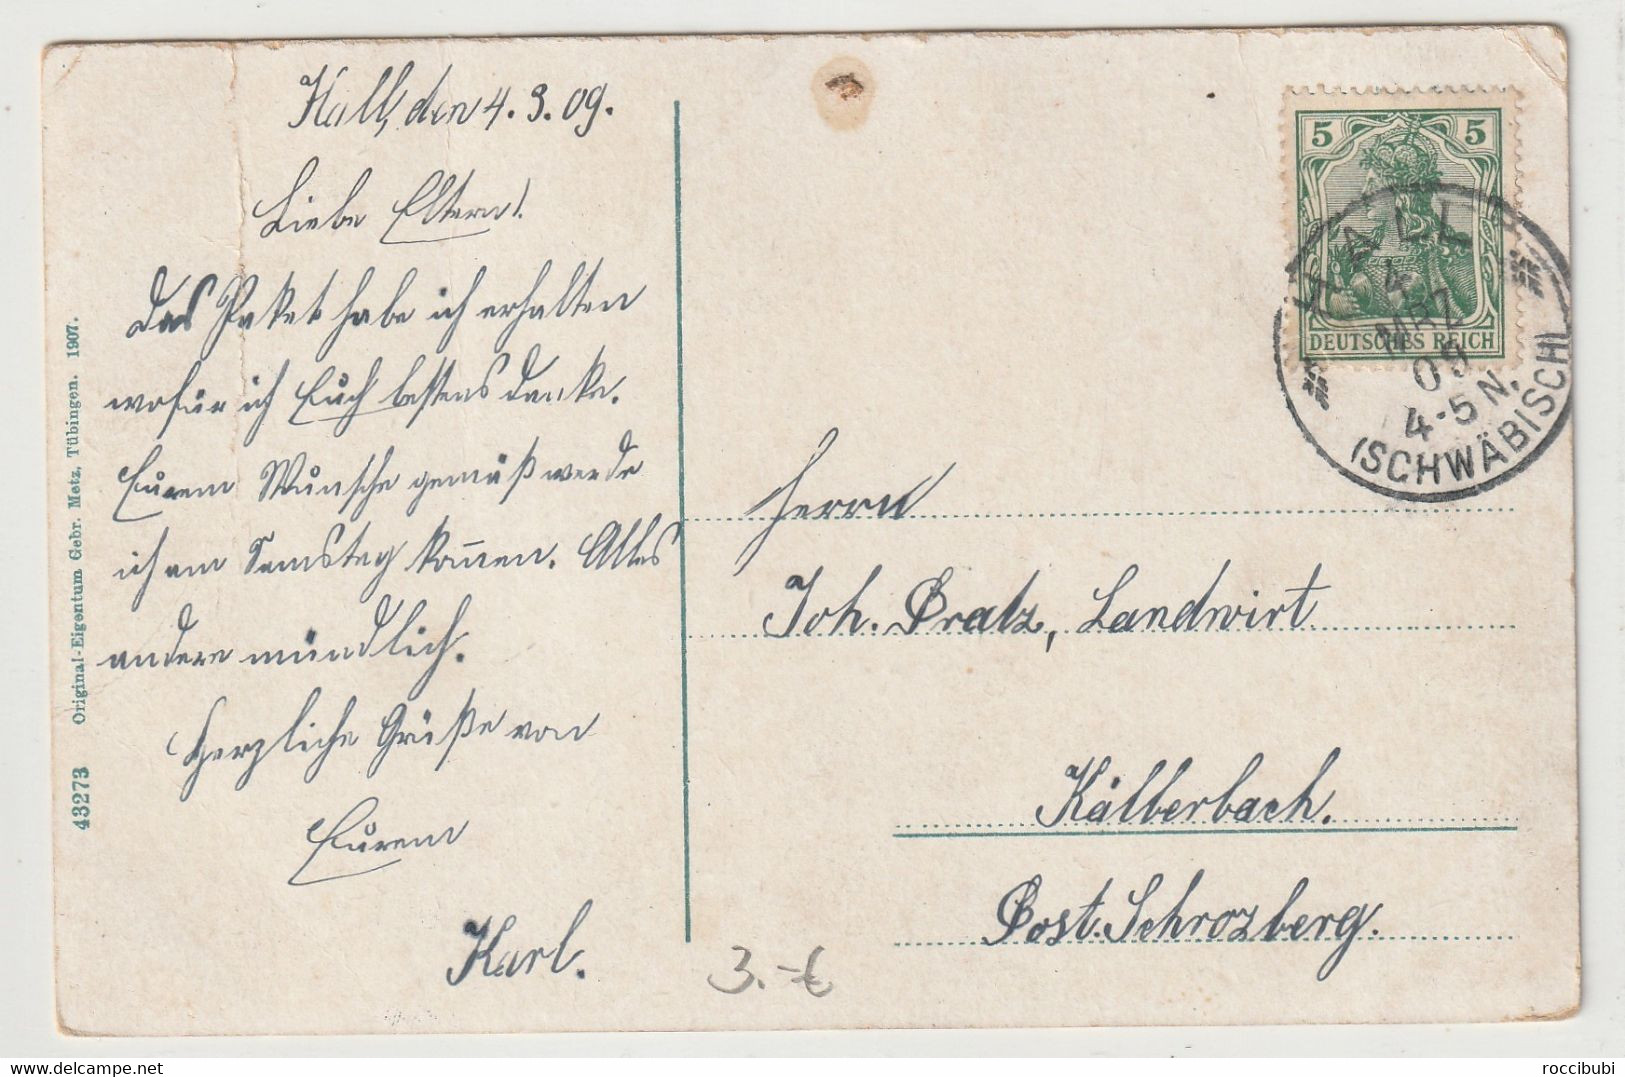 Hall, den 4.3.09.
Liebe Eltern!
Das Paket habe ich erhalten
wofür ich Euch bestens danke.
Eurem Wunsche gemäß werde
ich am Samstag kom̅en. Alles
andere mündlich.
Herzliche Grüße von
Eurem
Karl.
43273 Original-Eigentum Gebr. Metz, Tübingen. 1907.
5 5
DEUTSCHES REICH
HALL
4
MRZ
09
4-5 N.
(SCHWÄBISCH)
Herrn
Joh. Pratz, Landwirt
Kälberbach.
Post. Schrozberg.
3.-€
roccibubi
delcampe.net